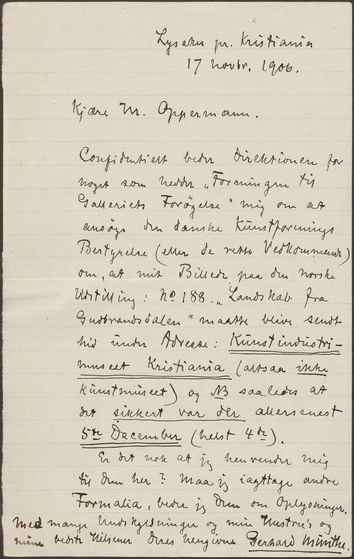 Lysaker pr. Kristiania
17 Novbr. 1906.
Kjære Mr. Oppermann.
Confidentielt beder Direktionen for
noget som hedder „Foreningen til
Galleriets Forøgelse" mig om at
ansøge den danske Kunstforenings
Bestyrelse (eller de rette Vedkommende)
om, at mit Billede paa den norske
Udstilling: No 188. „Landskab fra
Gudbrandsdalen" maatte blive sendt
hid under Adresse: Kunstindustri-
museet Kristiania (altsaa ikke
Kunstmuseet) og NB saaledes at
det sikkert var der allersenest
5te December (helst 4de).
Er det nok at jeg henvender mig
til Dem her? Maa jeg iagttage andre
Formalia, beder jeg Dem om Oplysninger.
Med mange Undskyldninger og min Hustru's og
mine bedste Hilsener Deres hengivne Gerhard Munthe.